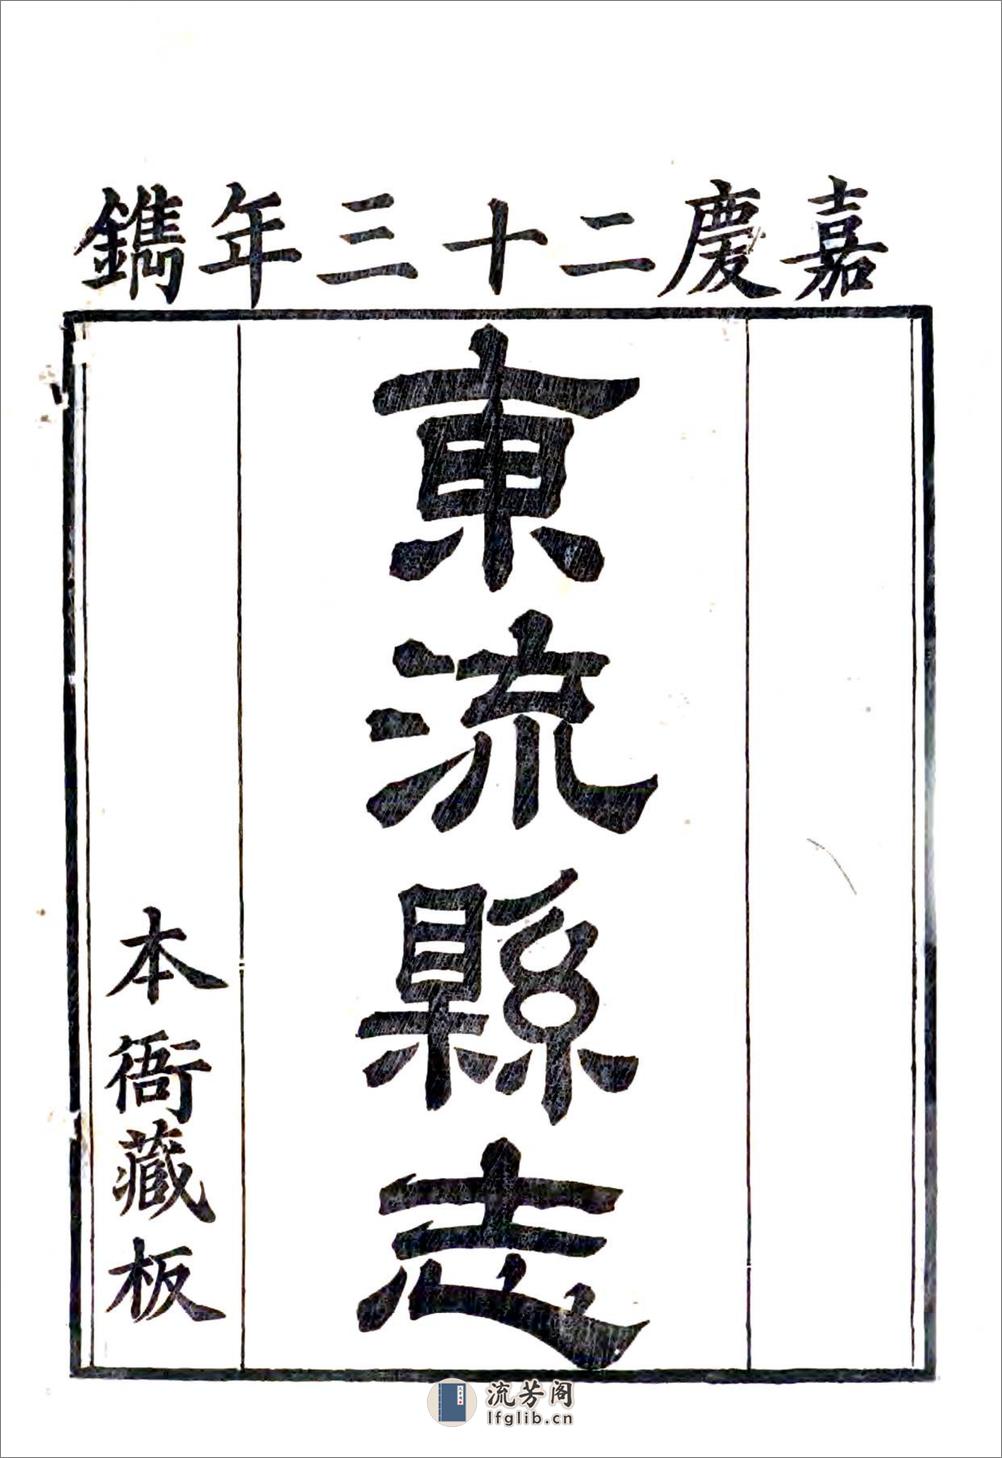 嘉慶二十三年鐫
東流縣志
本衙藏板
流芳阁
lfglib.cn